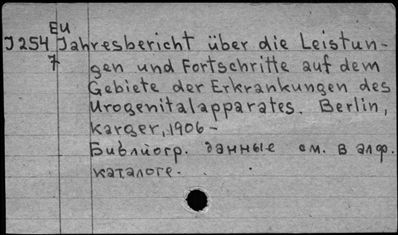 Eu
J254 Jahresbericht über die Leistun-
7 gen und Fortschritte auf dem
Gebiete der Erkrankungen des
Urogenitalapparates. Berlin,
Karger, 1906 -
Библиогр. данные см. в алф.
каталоге.